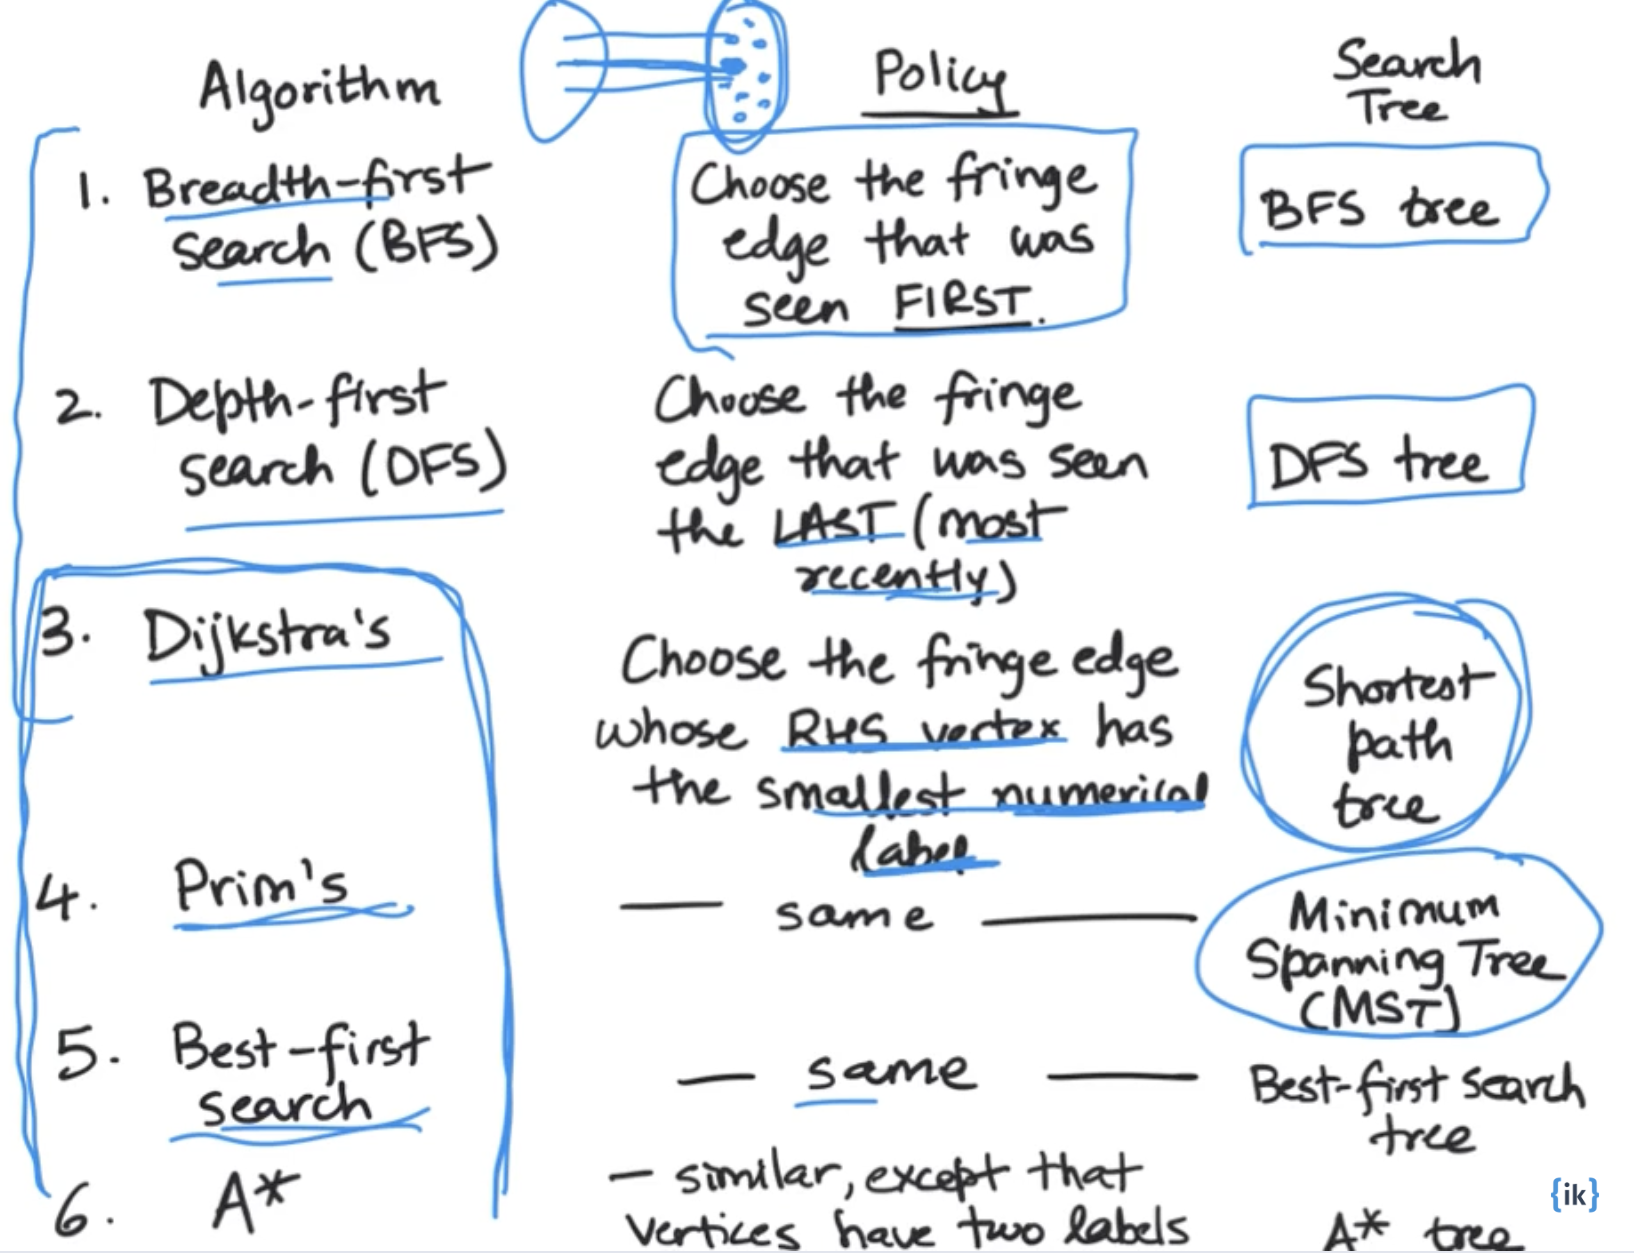 Algorithm
Policy
Search
Tree
1. Breadth-first
search (BFS)
Choose the fringe
edge that was
seen FIRST.
BFS tree
2. Depth-first
search (DFS)
Choose the fringe
edge that was seen
the LAST (most
recently)
DFS tree
3. Dijkstra's
Choose the fringe edge
whose RHS vertex has
the smallest numerical
label
Shortest
path
tree
4. Prim's
— same —
Minimum
Spanning Tree
(MST)
5. Best-first
search
— same —
Best-first search
tree
6. A*
— similar, except that
vertices have two labels
A* tree
{ik}